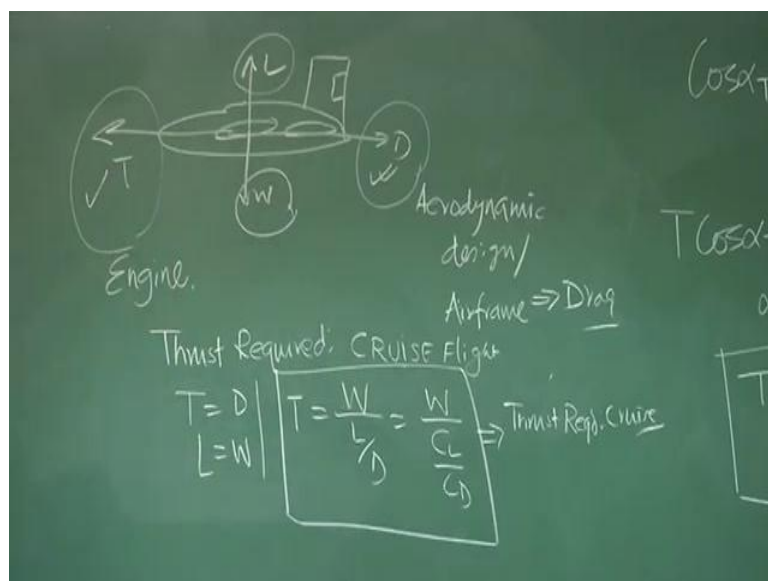 L
T
D
W
Engine.
Aerodynamic
design/
Airframe ⇒ Drag
Thrust Required: CRUISE Flight
T = D
L = W
T = W / (L/D) = W / (CL/CD)
⇒ Thrust Reqd. Cruise
Cosα T
T Cosα
T